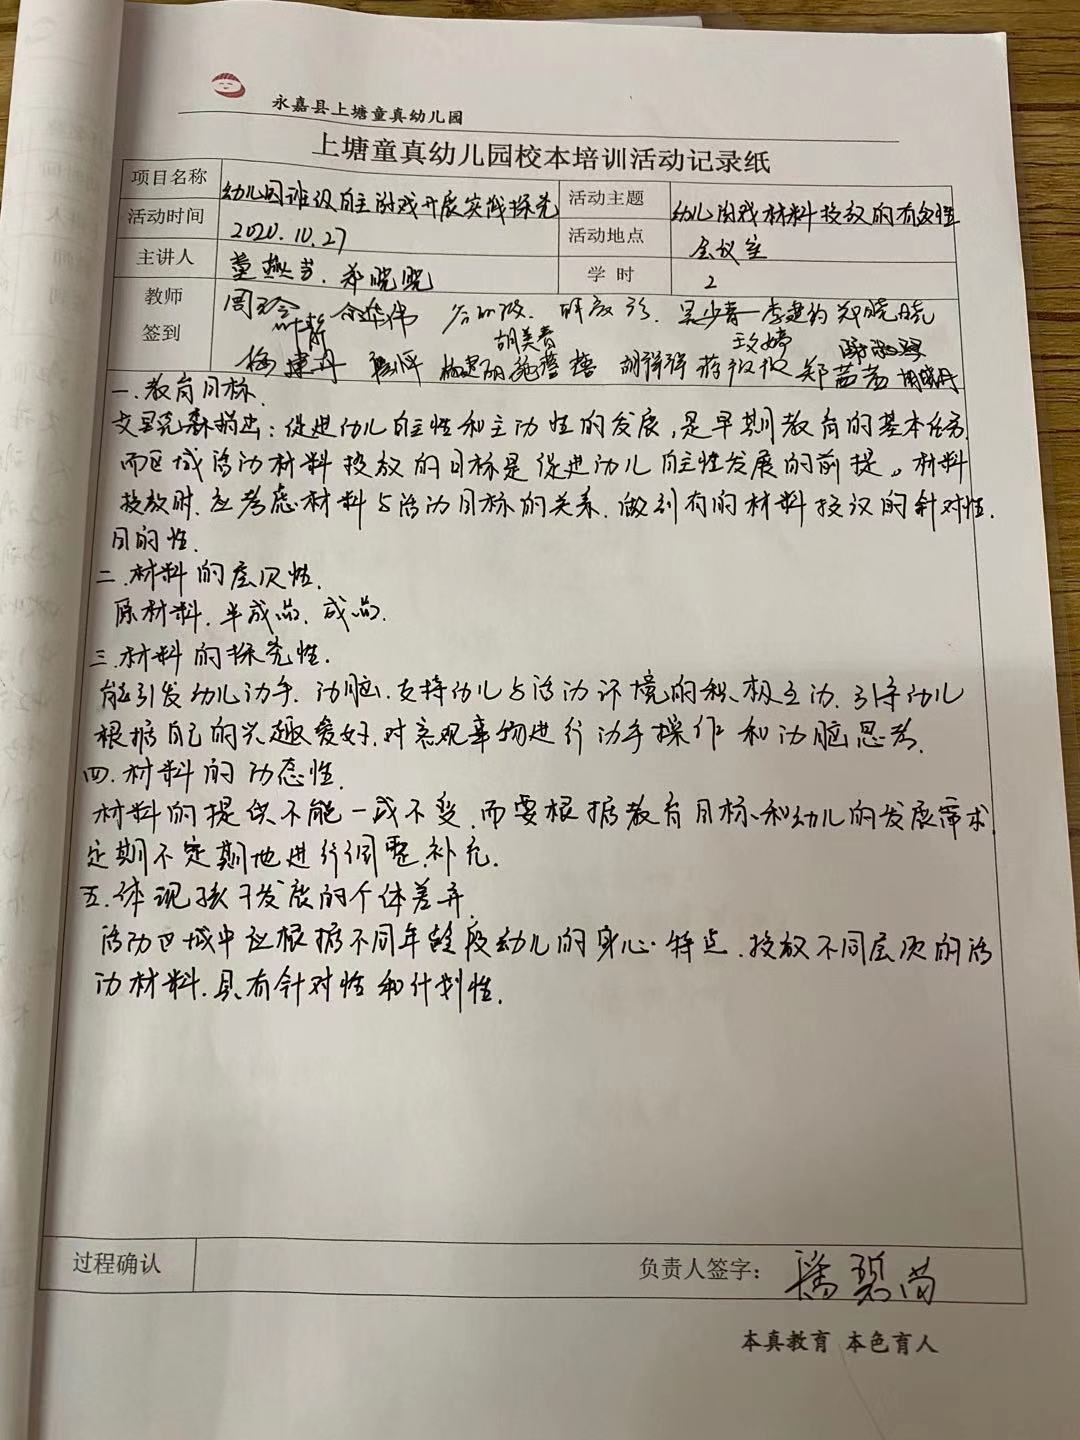 永嘉县上塘童真幼儿园
上塘童真幼儿园校本培训活动记录纸
项目名称 幼儿园班级自主游戏开展实践探究 活动主题 幼儿游戏材料投放的有效性
活动时间 2020.10.27 活动地点 会议室
主讲人 董燕芬、郑晓晓 学时 2
教师
签到
叶静 吴少春 李建钧 郑晓晓
胡美春
杨建丹 郑茜茜
一.教育目标.
艾里克森指出:促进幼儿自主性和主动性的发展,是早期教育的基本任务.
而区域活动材料投放的目标是促进幼儿自主性发展的前提。材料
投放时.应考虑材料与活动目标的关系.做到有的材料投议的针对性.
目的性.
二.材料的层次性.
原材料.半成品.成品.
三.材料的探究性.
能引发幼儿动手.动脑.支持幼儿与活动环境的积极主动.引导幼儿
根据自己的兴趣爱好.对客观事物进行动手操作和动脑思考.
四.材料的动态性.
材料的提供不能一成不变.而要根据教育目标和幼儿的发展需求.
定期不定期地进行调整.补充.
五.体现孩子发展的个体差异.
活动区域中应根据不同年龄段幼儿的身心特点.投放不同层次的活
动材料.具有针对性和计划性.
过程确认 负责人签字: 潘碧茜
本真教育 本色育人